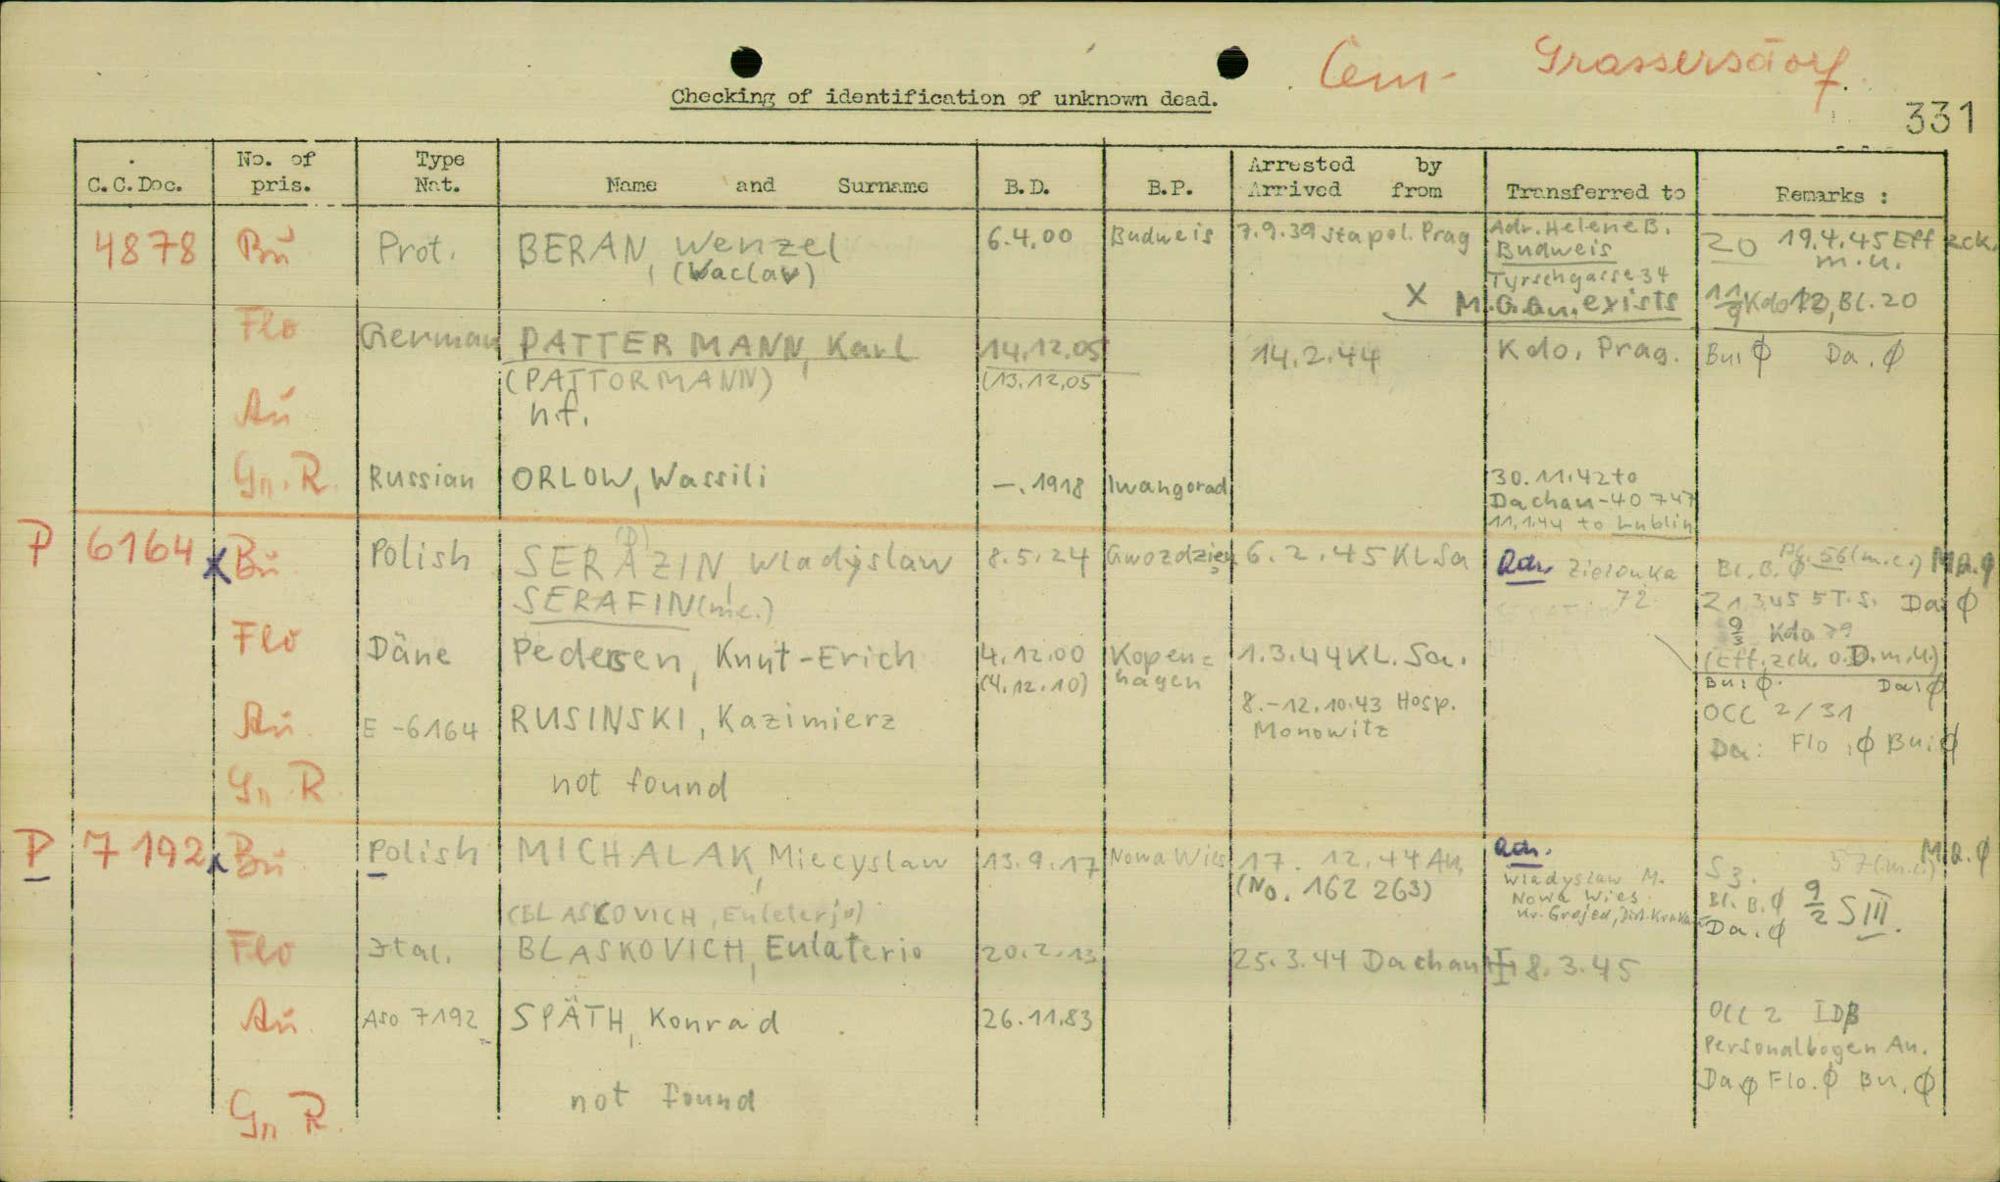 Cem- Grassersdorf.
Checking of identification of unknown dead.
331
C.C.Doc. No. of pris. Type Nat. Name and Surname B.D. B.P. Arrested by Arrived from Transferred to Remarks :
4878 Bu Prot. BERAN, Wenzel 6.4.00 Budweis 7.9.39 Stapol. Prag Adr. Helene B. 20 19.4.45 Eff zck.
(Waclaw) Budweis m.u.
Tyrschgasse 34
X M.G.au. exists 11/9 Kdo 12, Bl. 20
Flo German PATTERMANN, Karl 14.12.05 14.2.44 Kdo. Prag. Bu: ϕ Da. ϕ
(PATTORMANN) (13.12.05
Au n.f.
Gn. R. Russian ORLOW, Wassili —.1918 Iwangorad 30.11.42 to
Dachau-40747
11.1.44 to Lublin
P 6164 x Bu Polish SERAZIN, Wladyslaw 8.5.24 Gwozdziec 6.2.45 KL Sa Adr. Zielonka Bl. B. ϕ 56 (m.c.) M.A.ϕ
(P)
SERAFIN (m.c.) 72 Da: ϕ
9/3 Kdo 79
Flo Däne Pedersen, Knut-Erich 4.12.00 Kopen= 1.3.44 KL. Sa. (Eff. zck. o.D. m.U.)
(4.12.10) hagen Bu: ϕ Da: ϕ
8.-12.10.43 Hosp. OCC 2/31
Au. E-6164 RUSINSKI, Kazimierz Monowitz Da: Flo: ϕ Bu: ϕ
Gn. R not found
P 7192 x Bu Polish MICHALAK, Miecyslaw 13.9.17 Nowa Wies 17. 12.44 Au, Adr. S3. 57 (m.c.) M.A.ϕ
(No. 162 263) Wladyslaw M.
Nowa Wies Bl. B. ϕ 9/2 S III.
(BLASCOVICH, Euleterjo) Kr. Grojed, Dist. Krakau Da. ϕ
Flo Ital. BLASKOVICH, Eulaterio 20.2.13 25.3.44 Dachau 8.3.45
Au. Aso 7192 SPÄTH, Konrad 26.11.83 OCC 2 IDB
Personalbogen Au.
Da ϕ Flo. ϕ Bu. ϕ
Gn R. not found